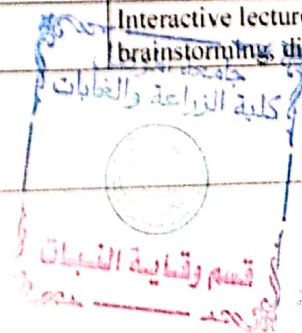 Interactive lecture
brainstorming, di
جامعة
كلية الزراعة والغابات
قسم وقاية النبات